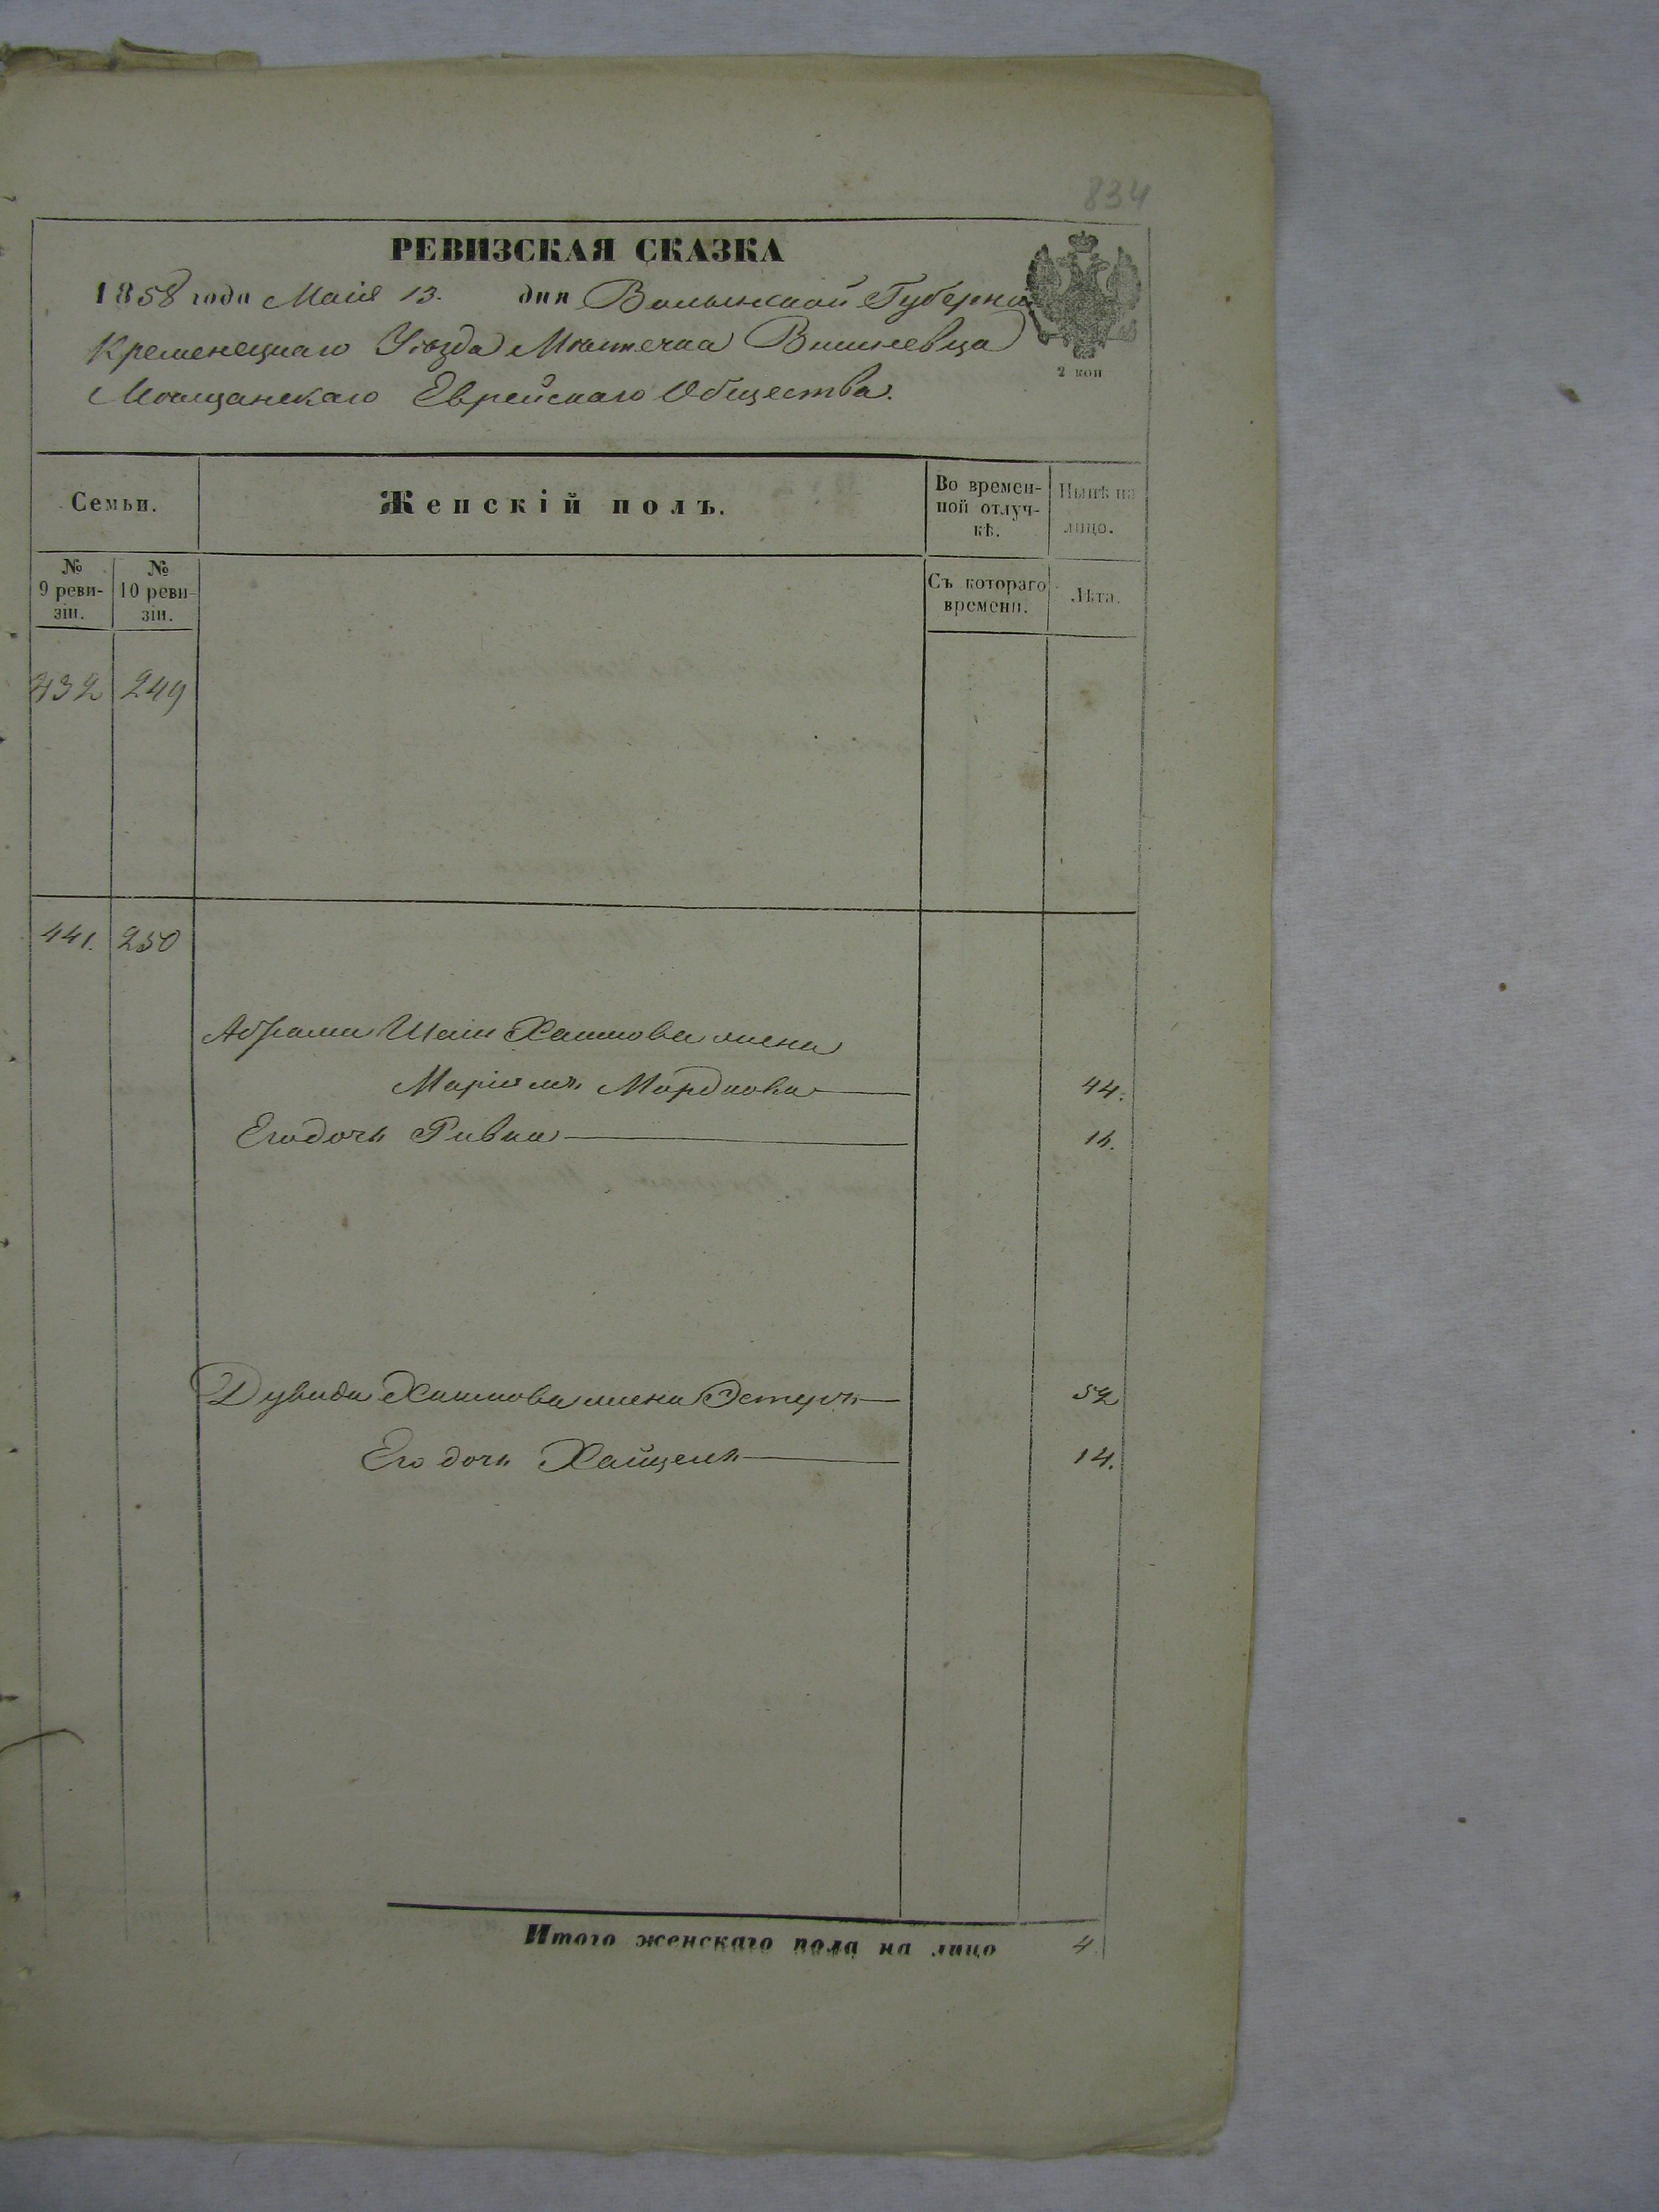 834
РЕВИЗСКАЯ СКАЗКА
1858 года Маія 13. дня Волынской Губерніи
Кременецкаго Уѣзда Мѣстечка Вишневца
2 коп
Мѣщанскаго Еврейскаго Общества.
Семьи. Женскій полъ. Во времен-ной отлуч-кѣ. Нынѣ на лицо.
№ 9 реви-зіи. № 10 реви-зіи. Съ котораго времени. Лѣта.
432 249
441. 250
Абрама Шаи Хаимова жена
Маріямъ Мордкова 44.
Его дочь Ривка 16.
Дувида Хаимова жена Эстеръ 52
Его дочь
14.
Итого женскаго пола на лицо 4